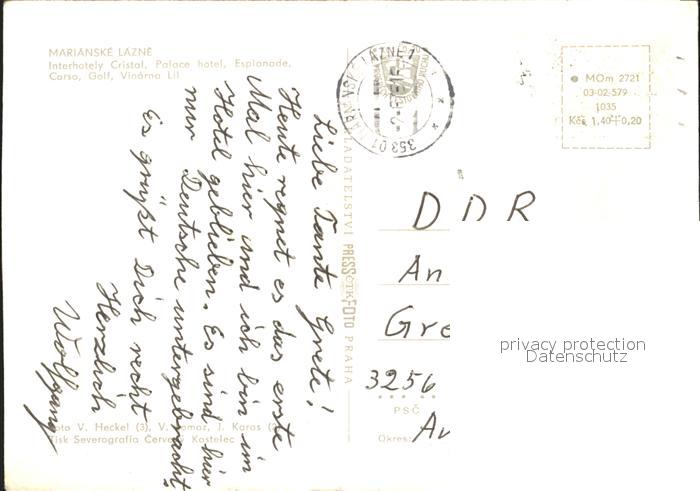 MARIÁNSKÉ LÁZNĚ
Interhotely Cristal, Palace hotel, Esplanade,
Corso, Golf, Vinárna Lil
Liebe Tante Grete!
Heute regnet es das erste
Mal hier und ich bin im
Hotel geblieben. Es sind hier
nur Deutsche untergebracht.
Es grüßt Dich recht
Herzlich
Wolfgang
Foto V. Heckel (3), V. J. Karas (2)
Tisk Severografia Červený Kostelec
NAKLADATELSTVÍ PRESSFOTO PRAHA
ČTK
353 01 MARIÁNSKÉ LÁZNĚ 1
MOm 2721
03-02-579
1035
Kčs 1,40+0,20
DDR
An
Gre
3256
PSČ
Okres:
privacy protection
Datenschutz